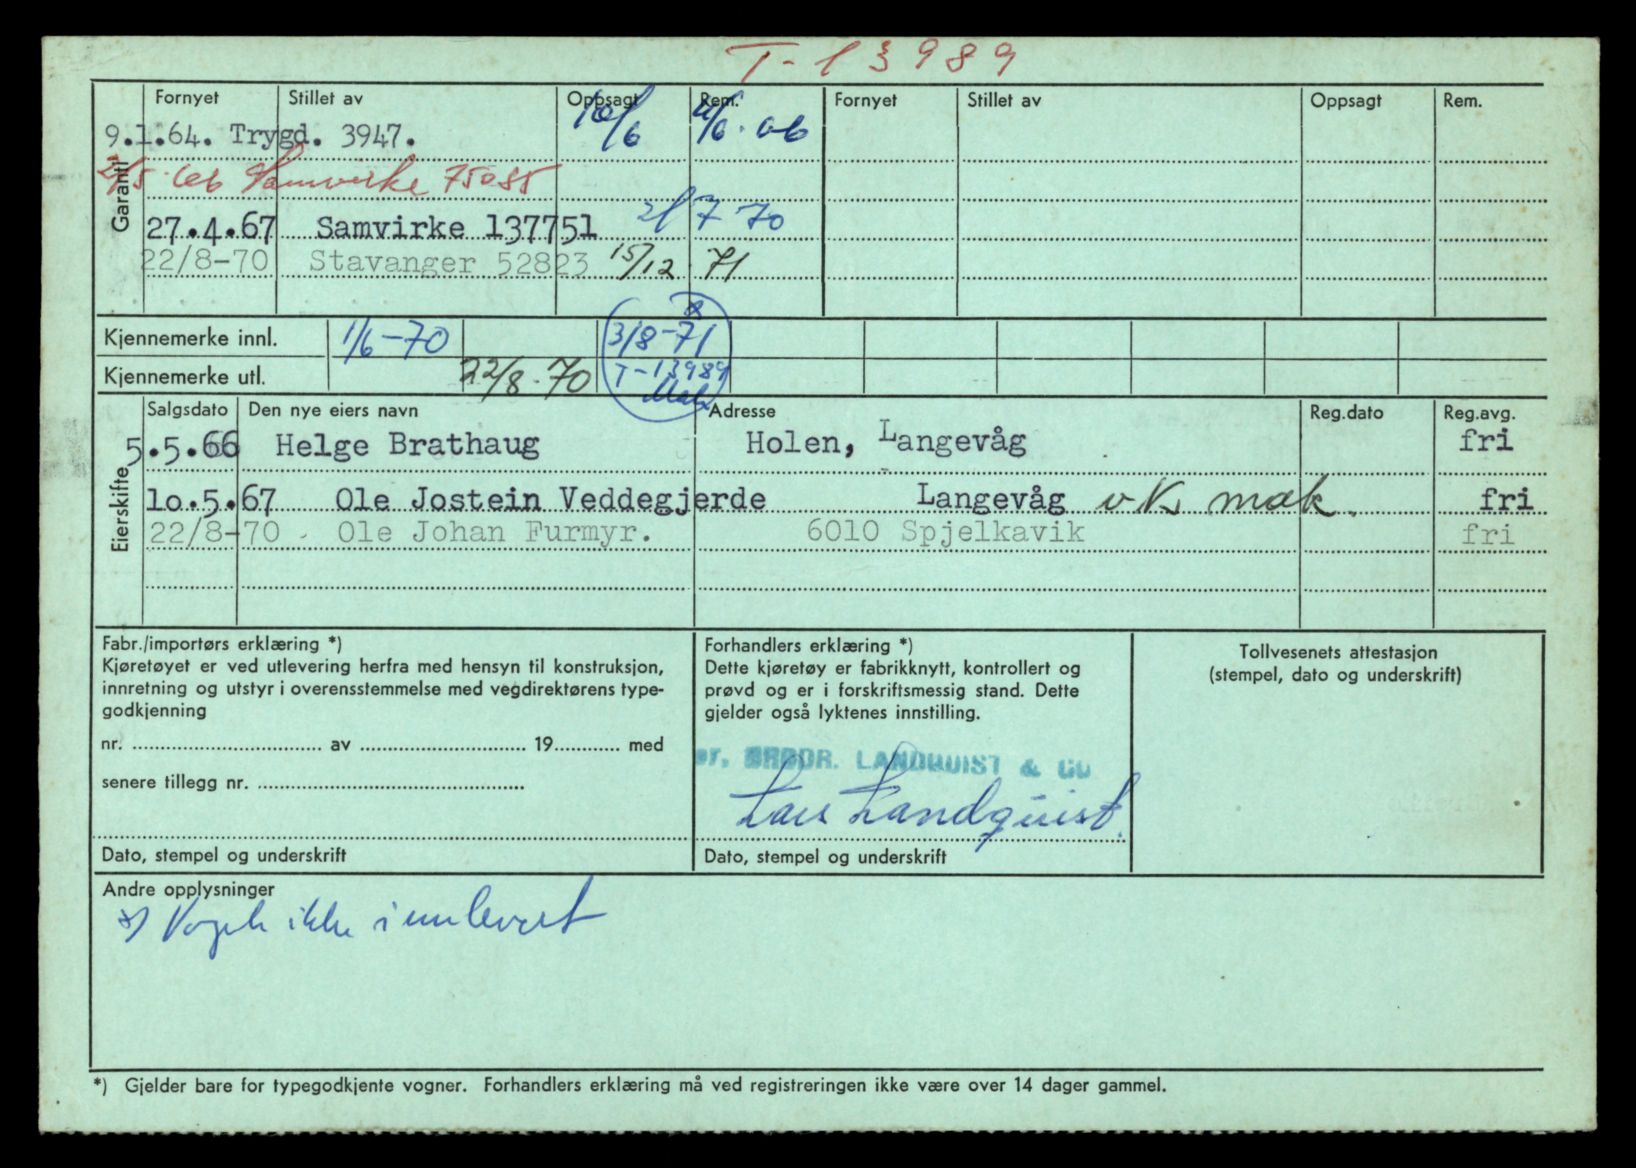 T-13989
Fornyet Stillet av Oppsagt Rem. Fornyet Stillet av Oppsagt Rem.
9.1.64. Trygd. 3947. 10/6 4/6.66
Garanti
2/5 66 Samvirke 75085
27.4.67 Samvirke 137751 21/7 70
22/8-70 Stavanger 52823 15/12 71
Kjennemerke innl. 1/6-70 3/8-71
Kjennemerke utl. 22/8-70 T-13989
Salgsdato Den nye eiers navn Adresse Reg.dato Reg.avg.
Eierskifte
5.5.66 Helge Brathaug Holen, Langevåg fri
10.5.67 Ole Jostein Veddegjerde Langevåg fri
22/8-70 Ole Johan Furmyr. 6010 Spjelkavik fri
Fabr./importørs erklæring *)
Kjøretøyet er ved utlevering herfra med hensyn til konstruksjon,
innretning og utstyr i overensstemmelse med vegdirektørens type-
godkjenning
nr. av 19 med
senere tillegg nr.
Dato, stempel og underskrift
Forhandlers erklæring *)
Dette kjøretøy er fabrikknytt, kontrollert og
prøvd og er i forskriftsmessig stand. Dette
gjelder også lyktenes innstilling.
pr. BRØDR. LANDQUIST & CO
Lars Landquist
Dato, stempel og underskrift
Tollvesenets attestasjon
(stempel, dato og underskrift)
Andre opplysninger
ikke innlevert
*) Gjelder bare for typegodkjente vogner. Forhandlers erklæring må ved registreringen ikke være over 14 dager gammel.